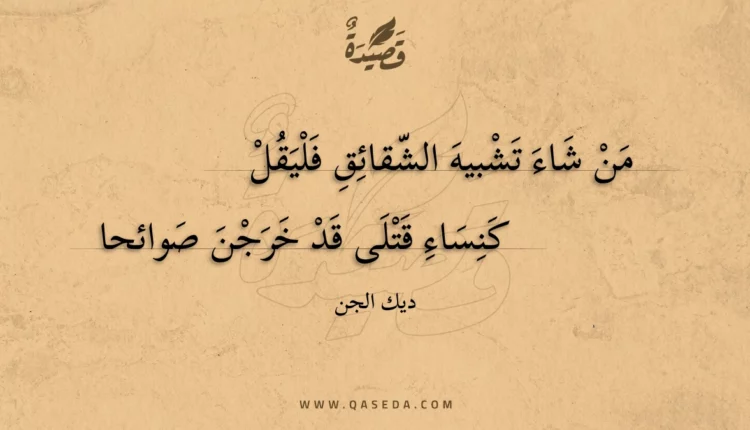 قَصِيْدَةٌ
مَنْ شَاءَ تَشْبيهَ الشّقائِقِ فَلْيَقُلْ
كَنِسَاءِ قَتْلَى قَدْ خَرَجْنَ صَوائحا
ديك الجن
WWW.QASEDA.COM